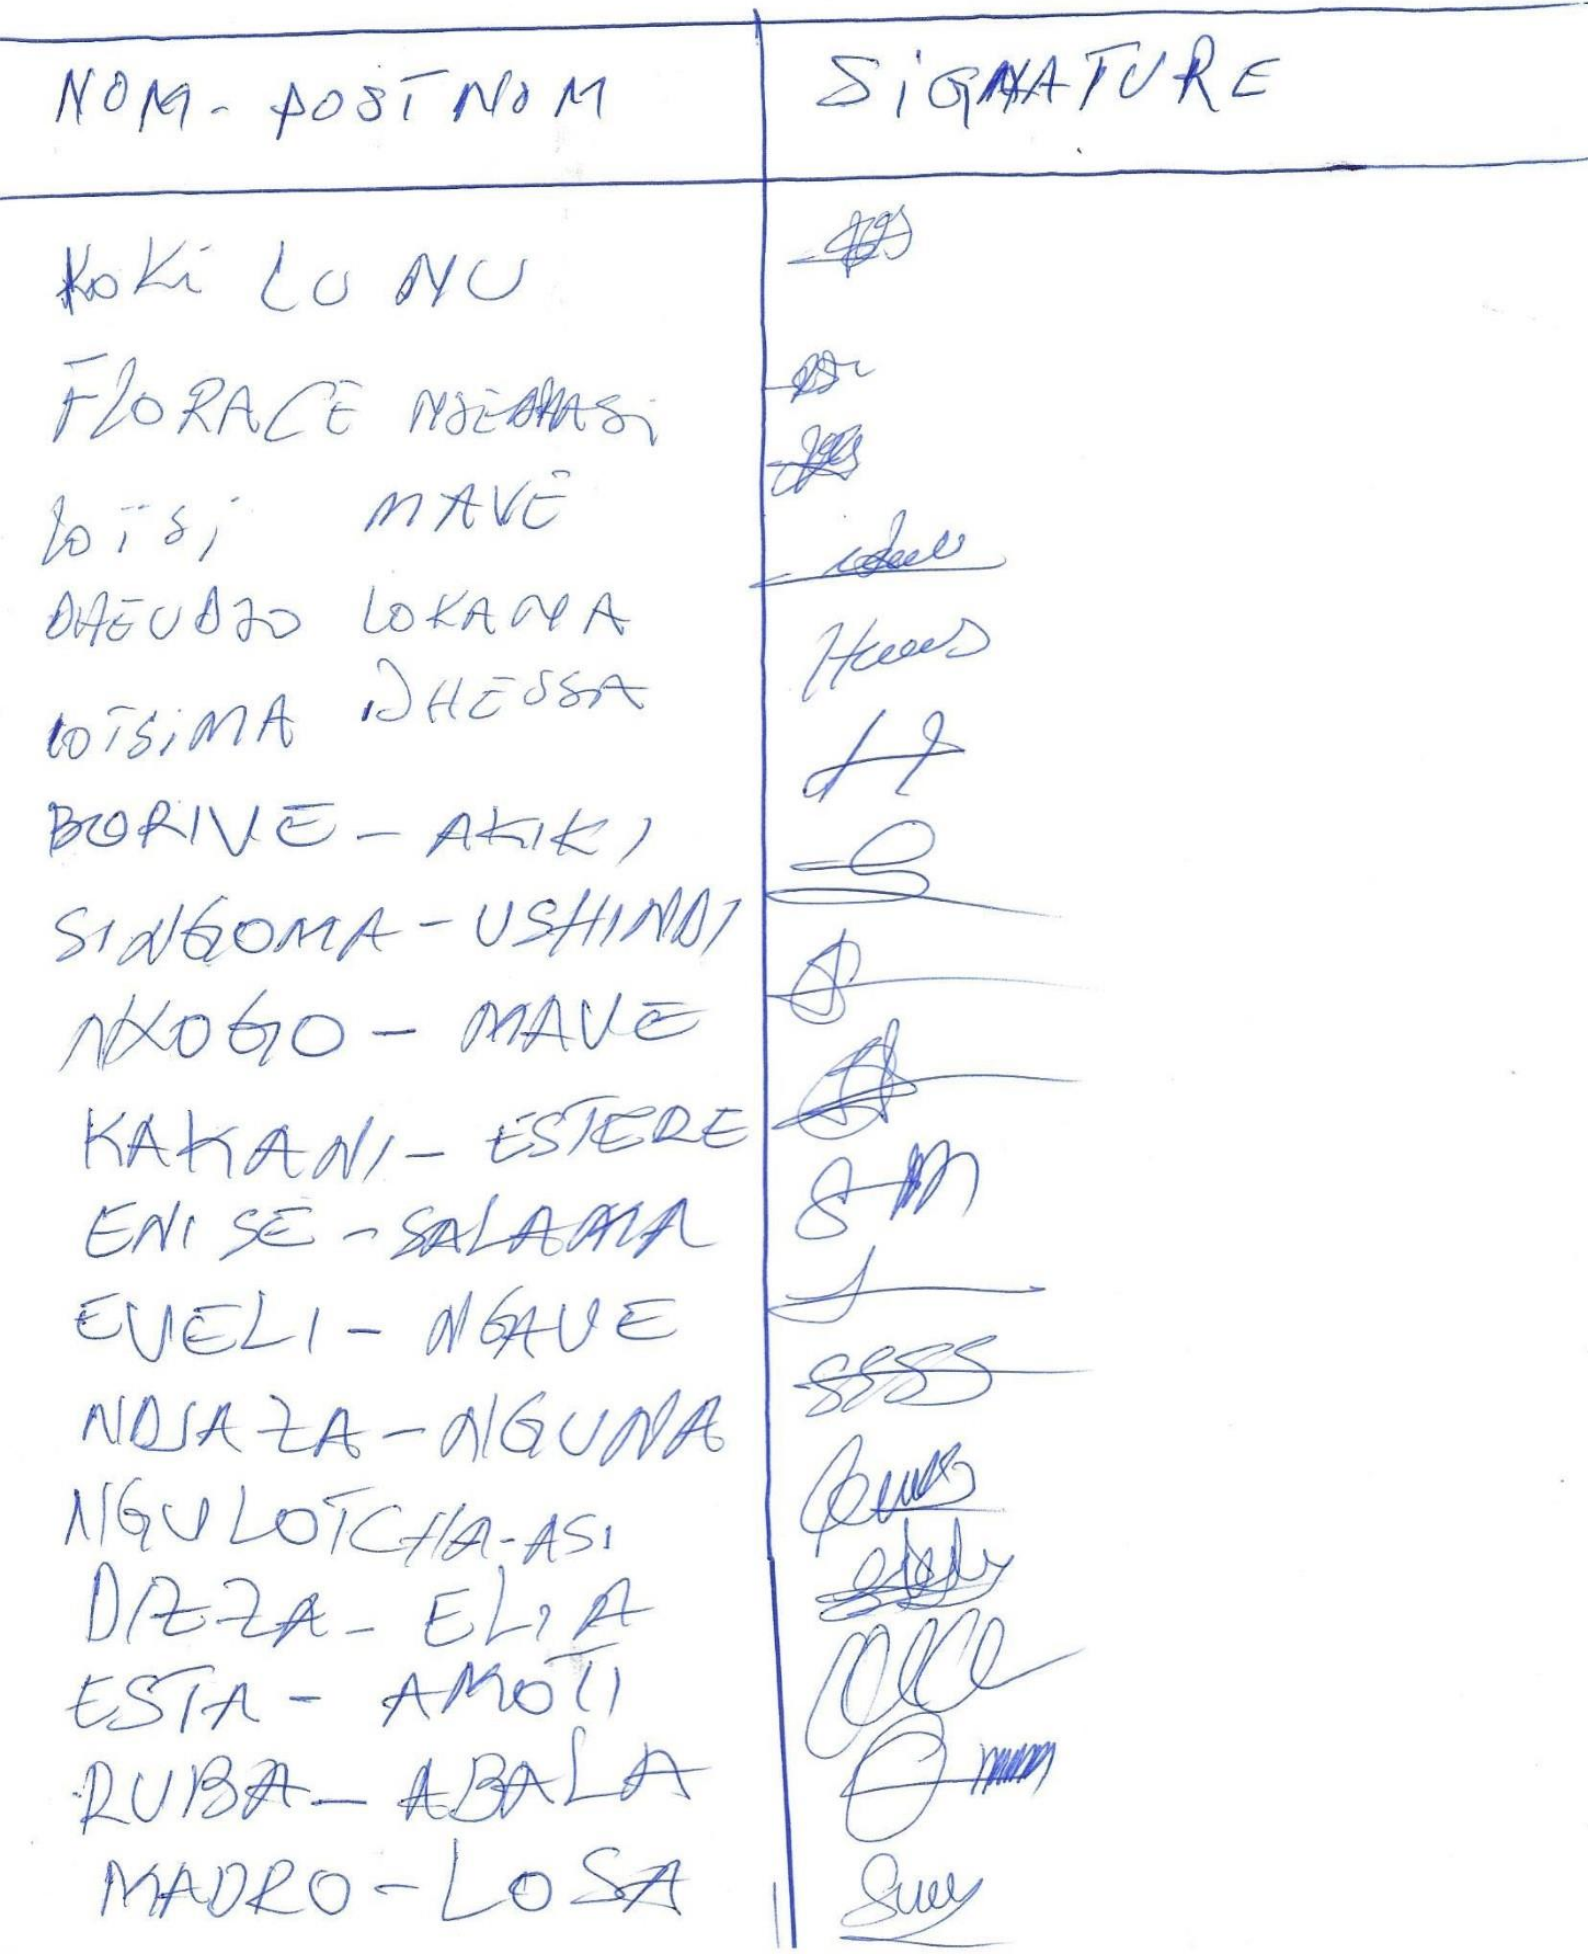 NOM - POSTNOM SIGNATURE
KOKI LONU
FLORACE
LOTSI MAVE
DHEUDJO LOKANA
LOTSIMA DHESSA
BORIVE - AKIKI
SINGOMA - USHINDI
NXOGO - MAVE
KAKANI - ESTERE
ENISE - SALAMA
EVELI - NGAVE
NDJAZA - NGUNA
NGULOTCHA - ASI
DIZZA - ELIA
ESTA - AMOTI
RUBA - ABALA
MADRO - LOSA